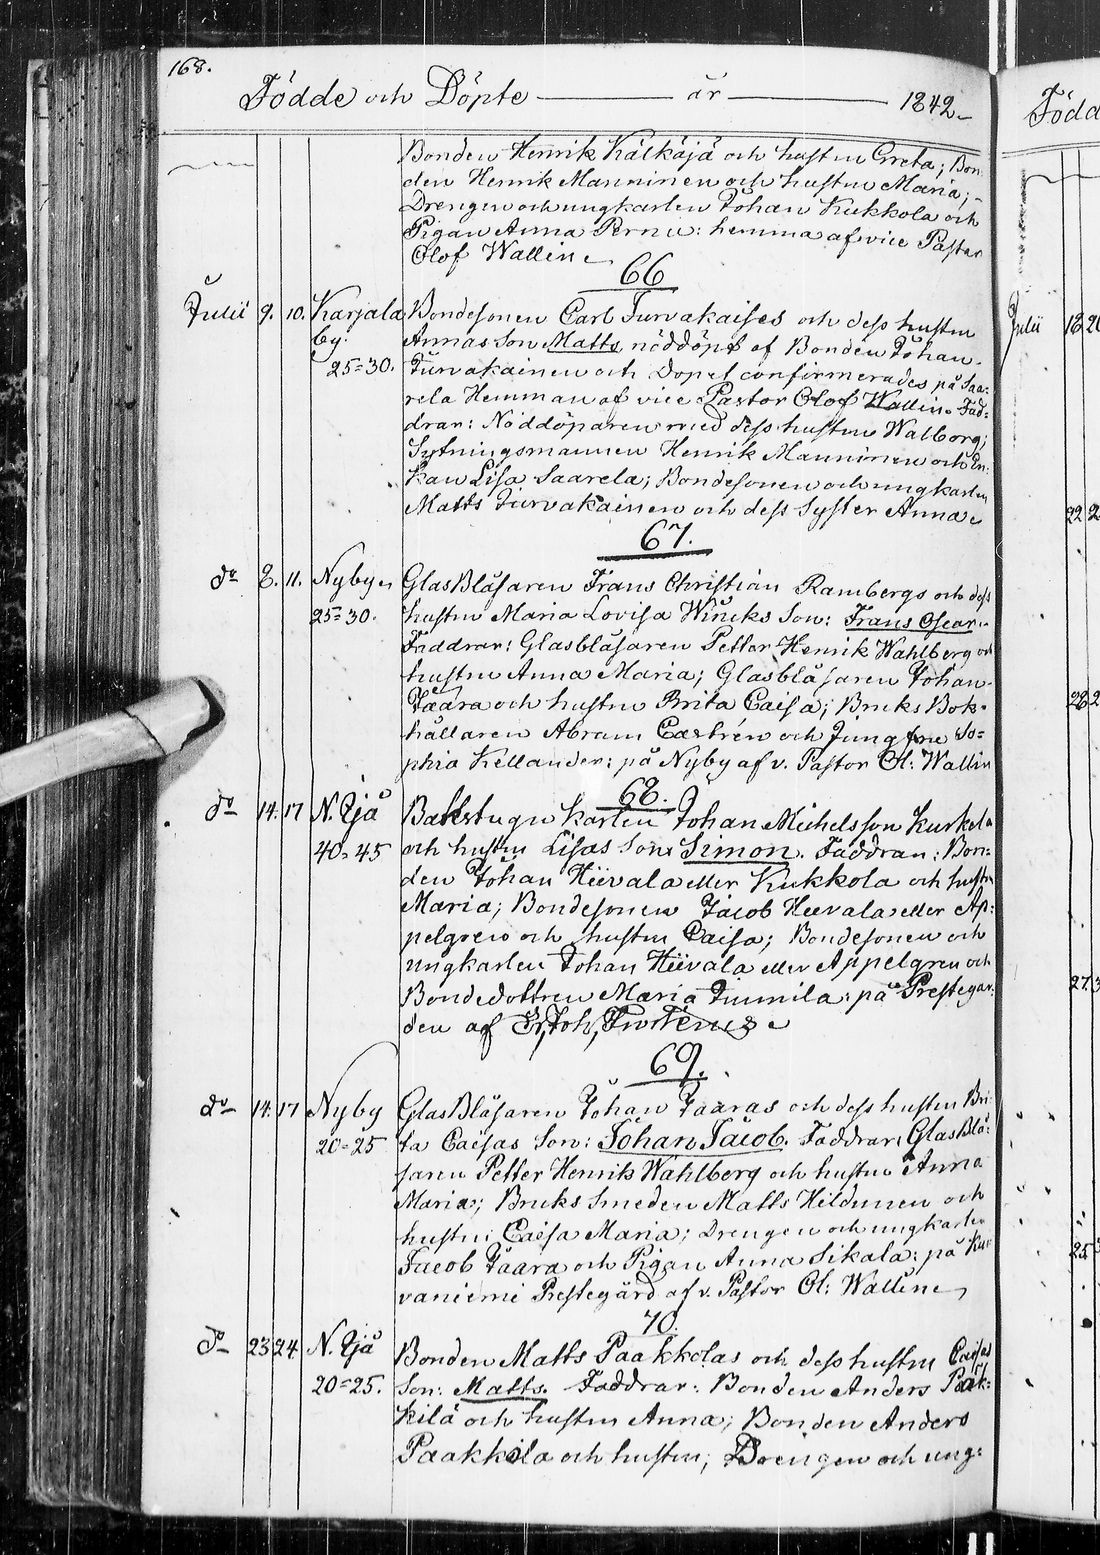 168.
Födde och Döpte — år — 1842
Födde
Bonden Henrik Kälkäjä och hustrun Greta; Bon-
den Henrik Manninen och hustrun Maria;
Drengen och ungkarlen Johan Kukkola och
Pigan Anna Pernu: hemma af vice Pastor
Olof Wallin
66
Julii 9. 10. Karjala Bondesonen Carl Turvakaises och dess hustru
by. Annas son Matts, nöddöpt af Bonden Johan
25=30. Turvakainen och Dopet confirmerades på Saa-
rela Hemman af vice Pastor Olof Wallin. Fad-
drar: Nöddöparen med dess hustru Walborg;
Sytningsmannen Henrik Manninen och En-
kan Lisa Saarela; Bondesonen och ungkarlen
Matts Turvakainen och dess Syster Anna
67.
do 8. 11. Nyby GlasBläsaren Frans Christian Rambergs och dess
25=30. hustru Maria Lovisa Wincks Son: Frans Oscar.
Faddrar: Glasbläsaren Petter Henrik Wahlberg och
hustru Anna Maria; Glasbläsaren Johan
Jaara och hustru Brita Caisa; Bruks Bok-
hållaren Abram Castrén och Jungfru So-
phia Kellander: på Nyby af v. Pastor Ol: Wallin
68.
do 14. 17 N. Ijå Bakstugu karlen Johan Michelsson Kurkela
40=45 och hustru Lisas Son: Simon. Faddrar: Bon-
den Johan Hiivala eller Kukkola och hustru
Maria; Bondesonen Jacob Hiivala eller Ap-
pelgren och hustru Caisa; Bondesonen och
ungkarlen Johan Hiivala eller Appelgren och
Bondedottren Maria Tuomila: på Prestegår-
den af
69.
do 14. 17 Nyby GlasBläsaren Johan Jaaras och dess hustru Bri-
20=25 ta Caisas Son: Johan Jacob. Faddrar: GlasBlä-
saren Petter Henrik Wahlberg och hustru Anna
Maria; Bruks Smeden Matts Hildunen och
hustru Caisa Maria; Drengen och ungkarlen
Jacob Jaara och Pigan Anna Sikala: på Kui-
vaniemi Prestegård af v. Pastor Ol: Wallin
70.
do 23 24 N. Ijå Bonden Matts Paakkolas och dess hustru Caisas
20=25. Son: Matts. Faddrar: Bonden Anders Paak-
kilä och hustru Anna; Bonden Anders
Paakkola och hustru; Drengen och ung-
Julii